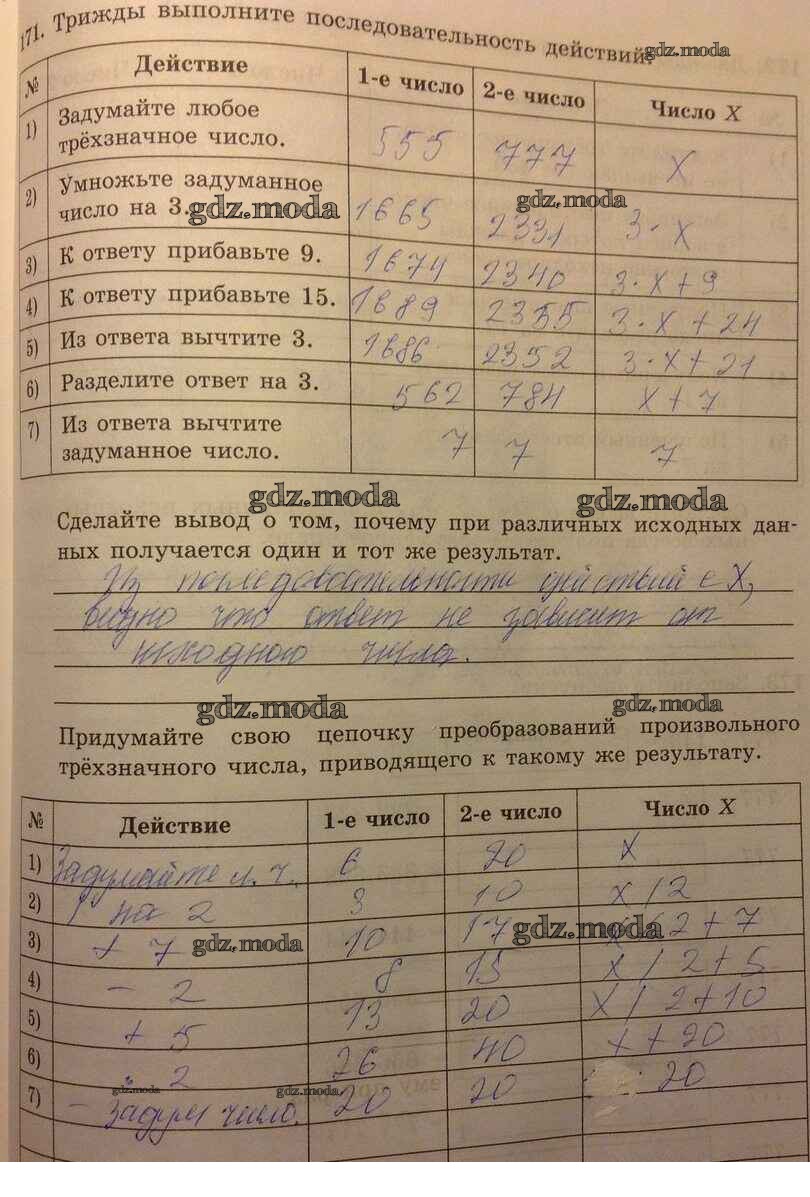 171. Трижды выполните последовательность действий.
gdz.moda
№ Действие 1-е число 2-е число Число X
1) Задумайте любое трёхзначное число. 555 777 X
2) Умножьте задуманное число на 3. 1665 2331 3·X
gdz.moda gdz.moda
3) К ответу прибавьте 9. 1674 2340 3·X+9
4) К ответу прибавьте 15. 1689 2355 3·X+24
5) Из ответа вычтите 3. 1686 2352 3·X+21
6) Разделите ответ на 3. 562 784 X+7
7) Из ответа вычтите задуманное число. 7 7 7
gdz.moda gdz.moda
Сделайте вывод о том, почему при различных исходных дан-
ных получается один и тот же результат.
Из последовательности действий с X,
видно что ответ не зависит от
исходного числа.
gdz.moda gdz.moda
Придумайте свою цепочку преобразований произвольного
трёхзначного числа, приводящего к такому же результату.
№ Действие 1-е число 2-е число Число X
1) Задумайте л. ч. 6 20 X
2) / на 2 3 10 X/2
3) + 7 10 17 X/2+7
gdz.moda gdz.moda
4) - 2 8 15 X/2+5
5) + 5 13 20 X/2+10
6) · 2 26 40 X+20
gdz.moda gdz.moda
7) - Задум число. 20 20 20